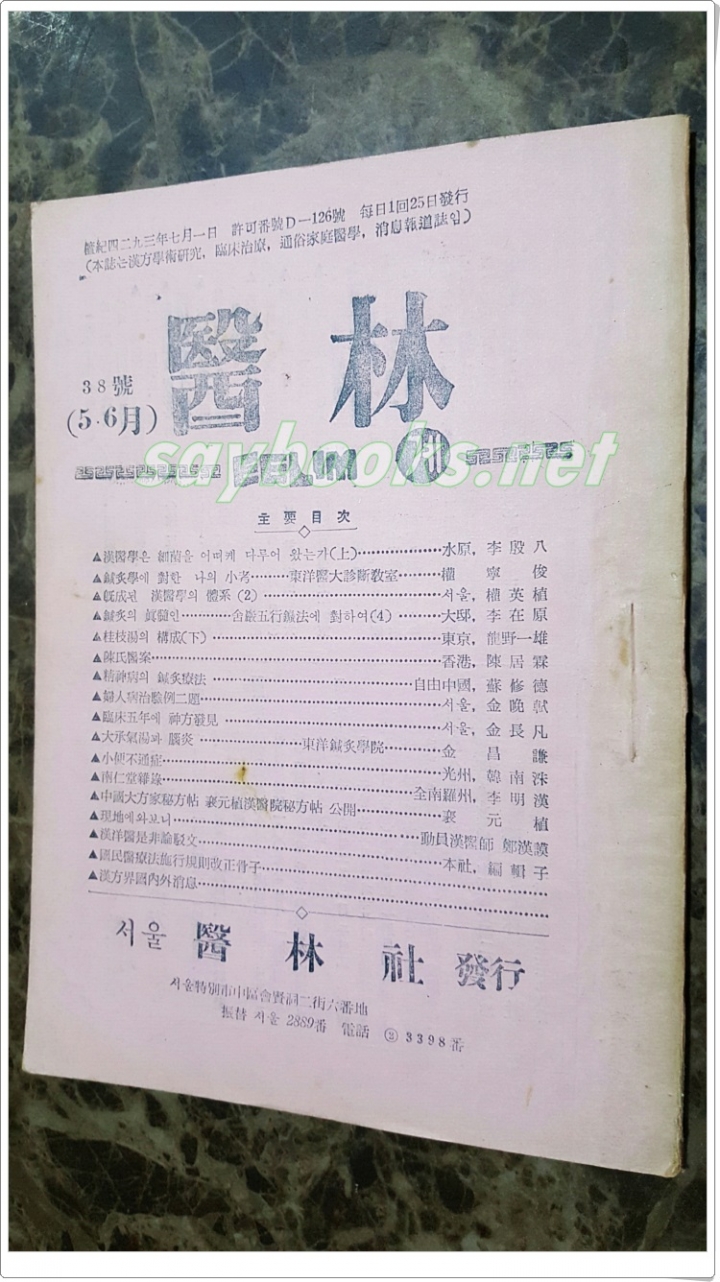 檀紀四二九三年七月一日 許可番號D—126號 每日1回25日發行
(本誌는漢方學術研究, 臨床治療, 通俗家庭醫學, 消息報道誌임)
醫林
38號
(5·6月)
EELIM
saybooks.net
主要目次
▲漢醫學은 細菌을 어떠케 다루어 왔는가(上)………………水原, 李殷八
▲鍼灸學에 對한 나의 小考………東洋醫大診斷教室………權寧俊
▲旣成된 漢醫學의 體系(2)………………서울, 權英植
▲鍼灸의 眞髓인…………舍巖五行鍼法에 對하여(4)………大邱, 李在原
▲桂枝湯의 構成(下)………………東京, 龍野一雄
▲陳氏醫案………………香港, 陳居霖
▲精神病의 鍼灸療法………………自由中國, 蘇修德
▲婦人病治驗例二題………………서울, 金晚
▲臨床五年에 神方發見………………서울, 金長凡
▲大承氣湯과 腦炎………………東洋鍼灸學院………金昌謙
▲小便不通症………………光州, 韓南洙
▲南仁堂雜錄………………全南羅州, 李明漢
▲中國大方家秘方帖 裵元植漢醫院秘方帖 公開………………裵元植
▲現地에와보니………………動員漢醫師 鄭漢謨
▲漢洋醫是非論駁文………………本社, 編輯子
▲國民醫療法施行規則改正骨子………………
▲漢方界國內外消息………………
서울 醫林社 發行
서울特別市中區會賢洞二街六番地
振替 서울 2889番 電話 ② 3398番